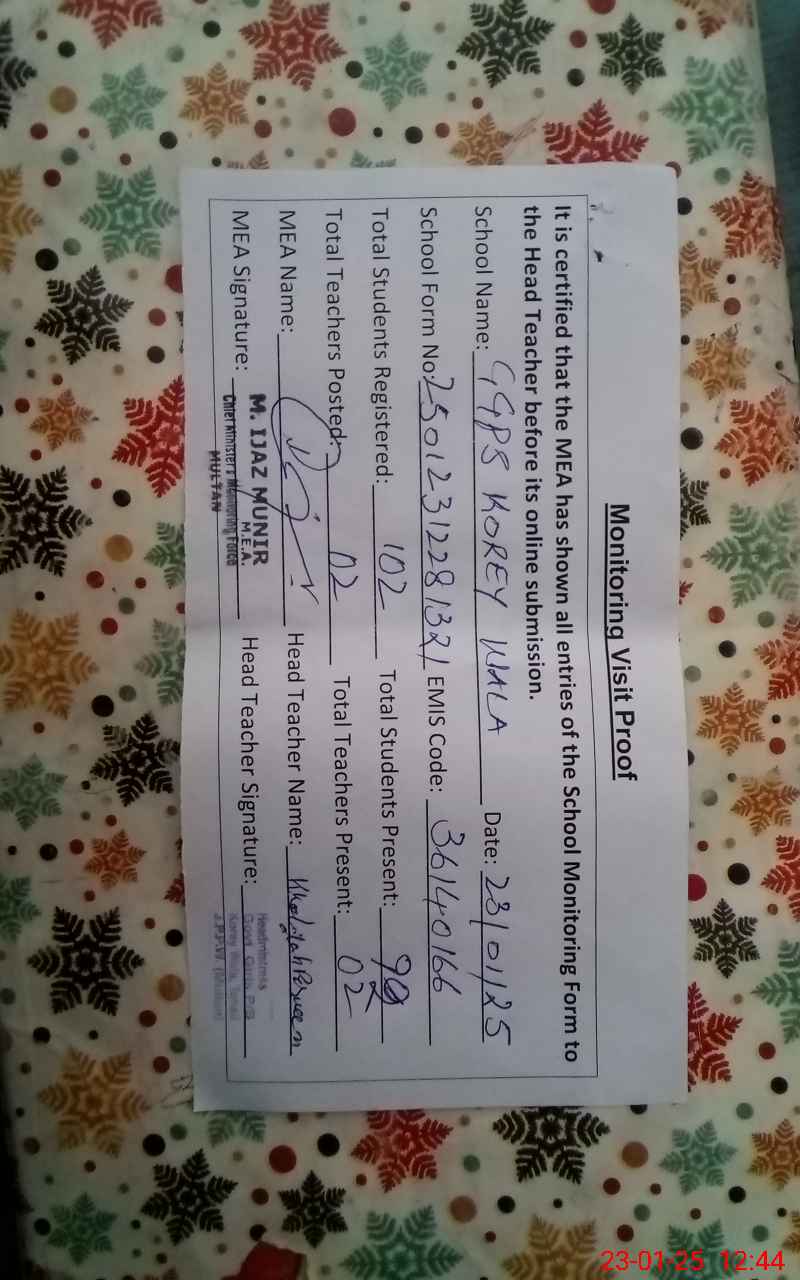 Monitoring Visit Proof
It is certified that the MEA has shown all entries of the School Monitoring Form to
the Head Teacher before its online submission.
School Name: GGPS KOREY WALA Date: 23/01/25
School Form No: 25012312281321 EMIS Code: 36140166
Total Students Registered: 102 Total Students Present:
Total Teachers Posted: 02 Total Teachers Present: 02
MEA Name: Head Teacher Name: Parveen
MEA Signature: Head Teacher Signature:
M. IJAZ MUNIR
M.E.A.
Chief Minister's Monitoring Force
MULTAN
Headmistress
Govt. Girls P/S
Korey Wala,
23-01-25 12:44